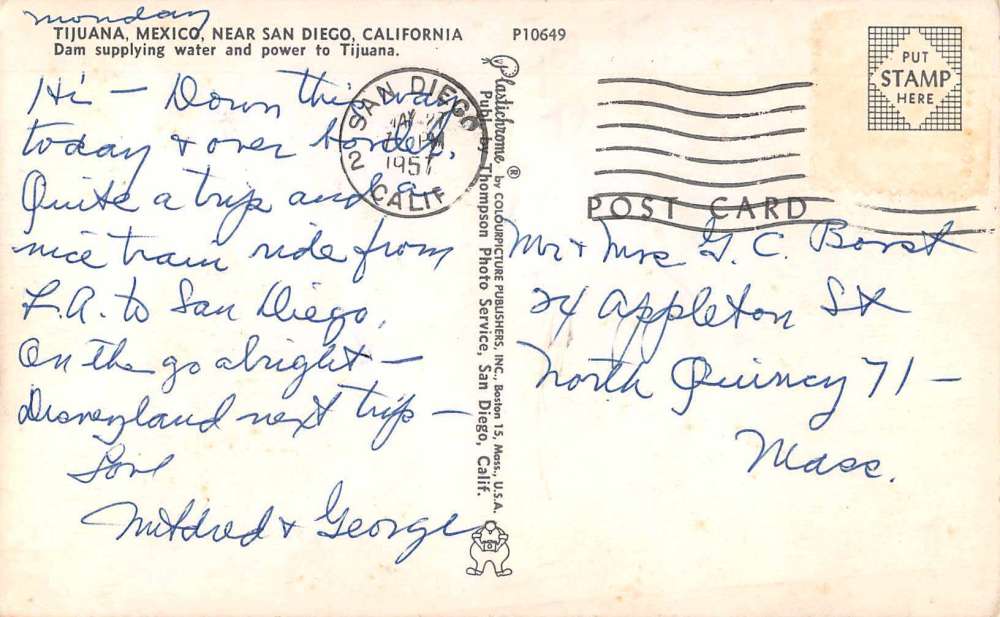 Monday
TIJUANA, MEXICO, NEAR SAN DIEGO, CALIFORNIA
Dam supplying water and power to Tijuana.
P10649
Hi – Down this way
today & over border.
Quite a trip and a
nice train ride from
L.A. to San Diego.
On the go alright –
Disneyland next trip –
Love
Mildred & George
SAN DIEGO
2
1957
CALIF
Plastichrome ® by COLOURPICTURE PUBLISHERS, INC., Boston 15, Mass., U.S.A.
Publ. by Thompson Photo Service, San Diego, Calif.
PUT
STAMP
HERE
POST CARD
Mr & Mrs G. C. Borst
24 Appleton St
North Quincy 71 –
Mass.